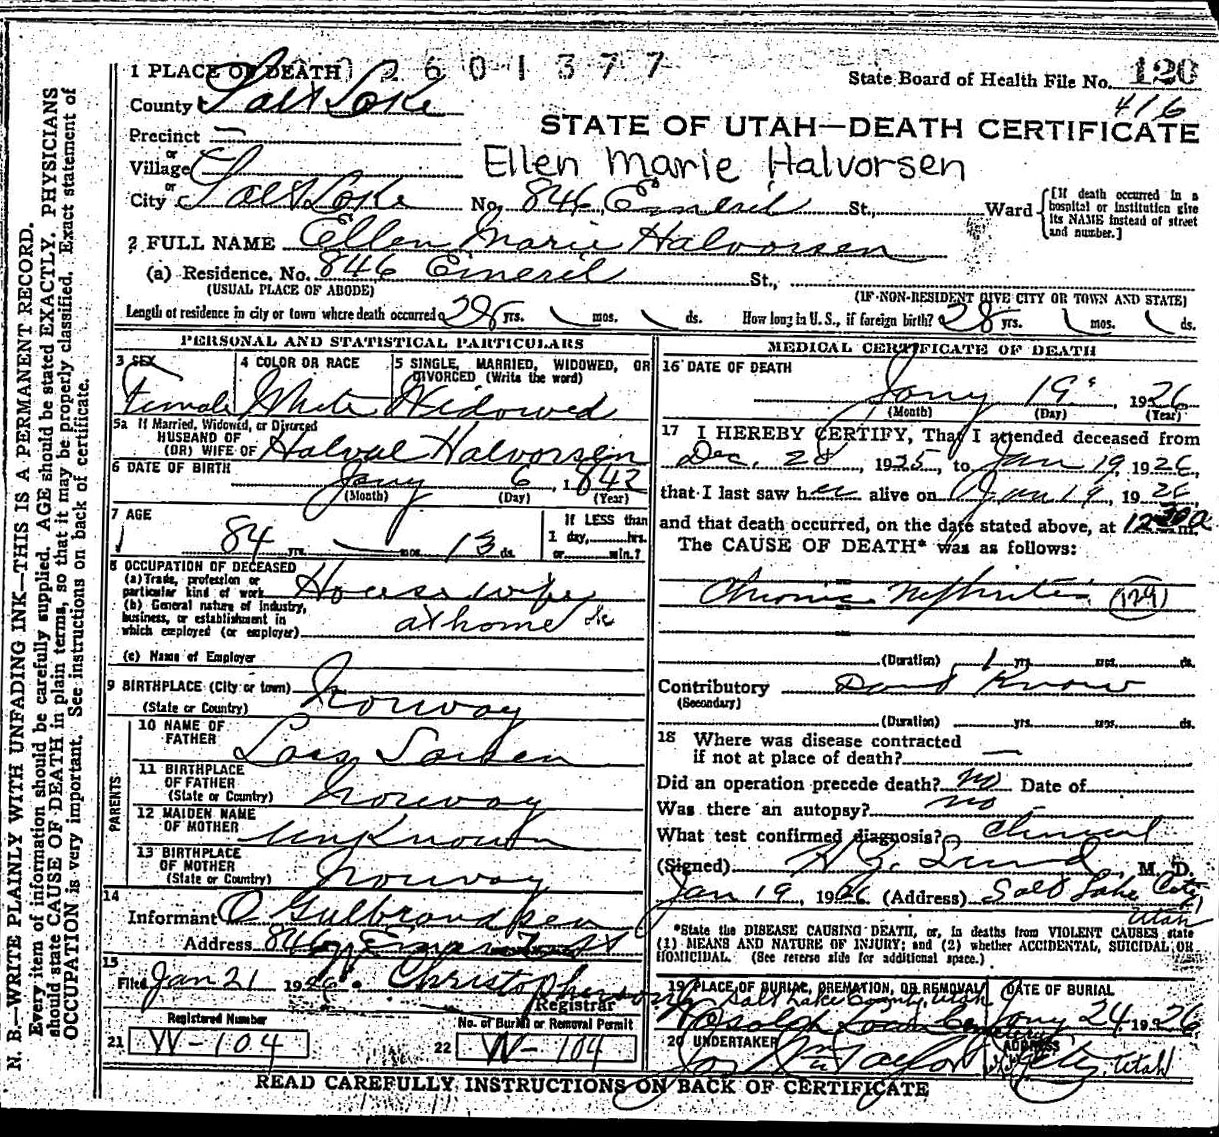 N. B.—WRITE PLAINLY WITH UNFADING INK—THIS IS A PERMANENT RECORD.
Every item of information should be carefully supplied. AGE should be stated EXACTLY. PHYSICIANS
should state CAUSE OF DEATH in plain terms, so that it may be properly classified. Exact statement of
OCCUPATION is very important. See instructions on back of certificate.
2601377
1 PLACE OF DEATH
State Board of Health File No. 120
County Salt Lake
416
STATE OF UTAH—DEATH CERTIFICATE
Precinct —
or
Village
Ellen Marie Halvorsen
or
City Salt Lake No. 846 St., Ward
[If death occurred in a hospital or institution give its NAME instead of street and number.]
2 FULL NAME Ellen Marie Halvorsen
(a) Residence. No. 846 St.,
(USUAL PLACE OF ABODE) (IF NON-RESIDENT GIVE CITY OR TOWN AND STATE)
Length of residence in city or town where death occurred 28 yrs. mos. ds. How long in U. S., if foreign birth? 28 yrs. mos. ds.
PERSONAL AND STATISTICAL PARTICULARS
3 SEX Female
4 COLOR OR RACE White
5 SINGLE, MARRIED, WIDOWED, OR DIVORCED (Write the word) Widowed
5a If Married, Widowed, or Divorced
HUSBAND OF
(OR) WIFE OF Halvor Halvorsen
6 DATE OF BIRTH Jany 6, 1842
(Month) (Day) (Year)
7 AGE
84 yrs. — mos. 13 ds.
If LESS than
1 day, hrs.
or min.?
8 OCCUPATION OF DECEASED
(a) Trade, profession or
particular kind of work Housewife
(b) General nature of industry,
business, or establishment in
which employed (or employer) at home
(c) Name of Employer
9 BIRTHPLACE (City or town)
(State or Country) Norway
PARENTS
10 NAME OF
FATHER Lars
11 BIRTHPLACE
OF FATHER
(State or Country) Norway
12 MAIDEN NAME
OF MOTHER Unknown
13 BIRTHPLACE
OF MOTHER
(State or Country) Norway
14
Informant O Gulbrandsen
Address 846
15
Filed Jan 21 1926. Christopherson
Registrar
Registered Number
No. of Burial or Removal Permit
21 W-104
22 W-104
MEDICAL CERTIFICATE OF DEATH
16 DATE OF DEATH
Jany 19, 1926
(Month) (Day) (Year)
17 I HEREBY CERTIFY, That I attended deceased from
Dec. 28, 1925, to Jan 19, 1926,
that I last saw her alive on Jan 19, 1926
and that death occurred, on the date stated above, at 12 30 a m.
The CAUSE OF DEATH* was as follows:
Chronic Nephritis (129)
(Duration) 1 yrs. mos. ds.
Contributory Dont Know
(Secondary)
(Duration) yrs. mos. ds.
18 Where was disease contracted
if not at place of death? —
Did an operation precede death? no Date of
Was there an autopsy? no
What test confirmed diagnosis? Clinical
(Signed) Lund, M. D.
Jan 19, 1926 (Address) Salt Lake City
Utah
*State the DISEASE CAUSING DEATH, or, in deaths from VIOLENT CAUSES state
(1) MEANS AND NATURE OF INJURY; and (2) whether ACCIDENTAL, SUICIDAL OR
HOMICIDAL. (See reverse side for additional space.)
19 PLACE OF BURIAL, CREMATION, OR REMOVAL
Salt Lake County, Utah
DATE OF BURIAL
Jany 24 1926
20 UNDERTAKER
Taylor
ADDRESS
City, Utah
READ CAREFULLY INSTRUCTIONS ON BACK OF CERTIFICATE